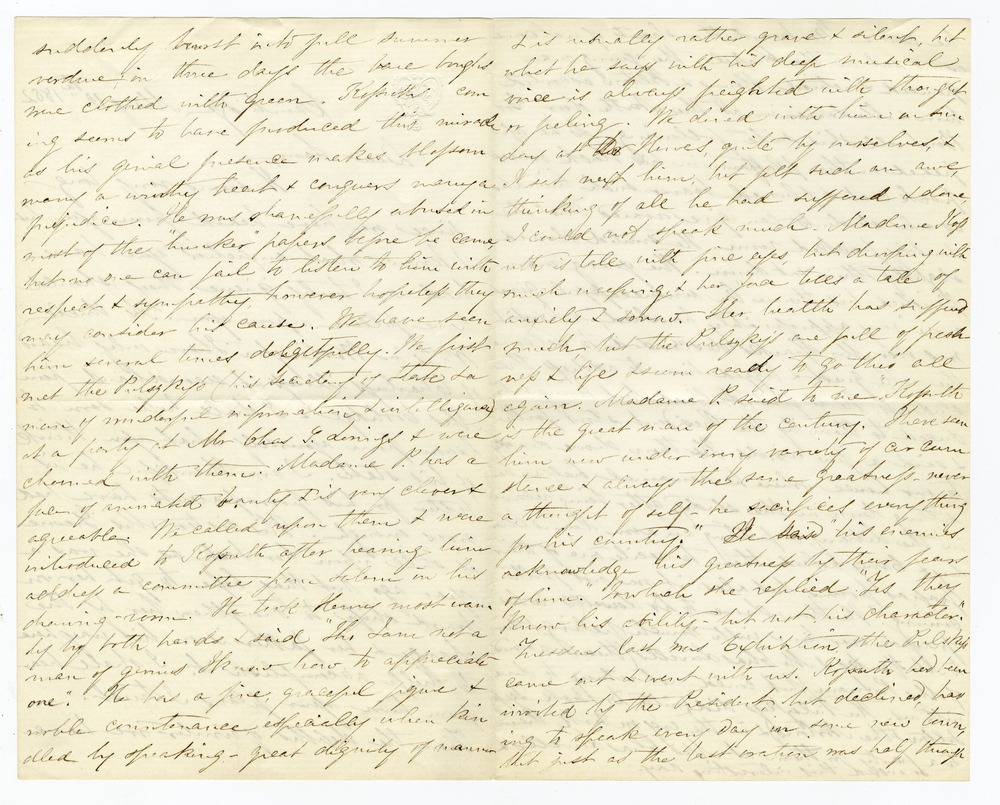 suddenly burst into full summer
verdure, in three days the bare boughs
were clothed with green. Kossuth's com
ing seems to have produced this miracle
as his genial presence makes blossom
many a wintry heart & conquers many a
prejudice. He was shamefully abused in
most of the "hunker" papers before he came
but no one can fail to listen to him with
respect & sympathy however hopeless they
may consider his cause. We have seen
him several times delightfully. We first
met the Pulszkys (his secretary of state & a
man of wonderful information & intelligence)
at a party at Mr Chas G. Lorings & were
charmed with them. Madame P. has a
face of animated beauty & is very clever &
agreeable. We called upon them & were
introduced to Kossuth after hearing him
address a committee from Salem in his
drawing-room. He took Henry most warm
ly by both hands & said "Tho' I am not a
man of genius I know how to appreciate
one." He has a fine, graceful figure &
noble countenance, especially when kin
dled by speaking - great dignity of manner
& is usually rather grave & silent, but
what he says with his deep musical
voice is always freighted with thought
or feeling. We dined with him on Sun
day at the Howes, quite by ourselves, &
I sat next him, but felt such an awe,
thinking of all he had suffered & done
I could not speak much. Madame Koss
uth is tall with fine eyes, but drooping with
much weeping & her face tells a tale of
anxiety & sorrow. Her health has suffered
much, but the Pulszkys are full of fresh
ness & life & seem ready to go thro' all
again. Madame P. said to me "Kossuth
is the great man of the century. I have seen
him now under every variety of circum
stance & always the same greatness - never
a thought of self - he sacrifices everything
for his country." We said "his enemies
acknowledge his greatness by their fears
of him." To which she replied "Yes they
know his ability - but not his character."
Tuesday last was Exhibition, & the Pulszkys
came out & went with us. Kossuth had been
invited by the President but declined, hav
ing to speak every day in some new town,
But just as the last oration was half through